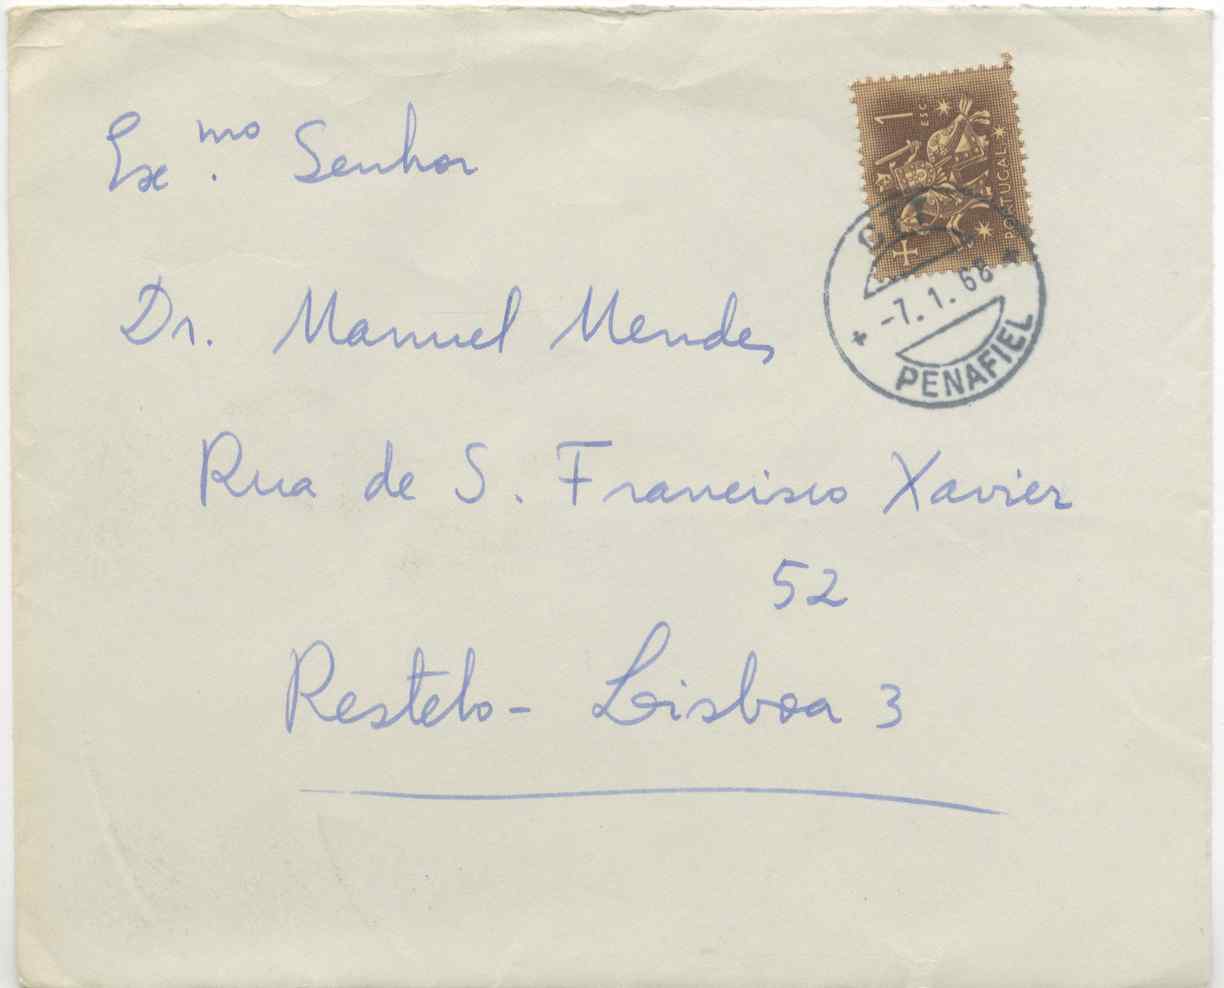 Ex.mo Senhor
Dr. Manuel Mendes
Rua de S. Francisco Xavier
52
Restelo - Lisboa 3
1
ESC.
PORTUGAL
-7.1.68
PENAFIEL